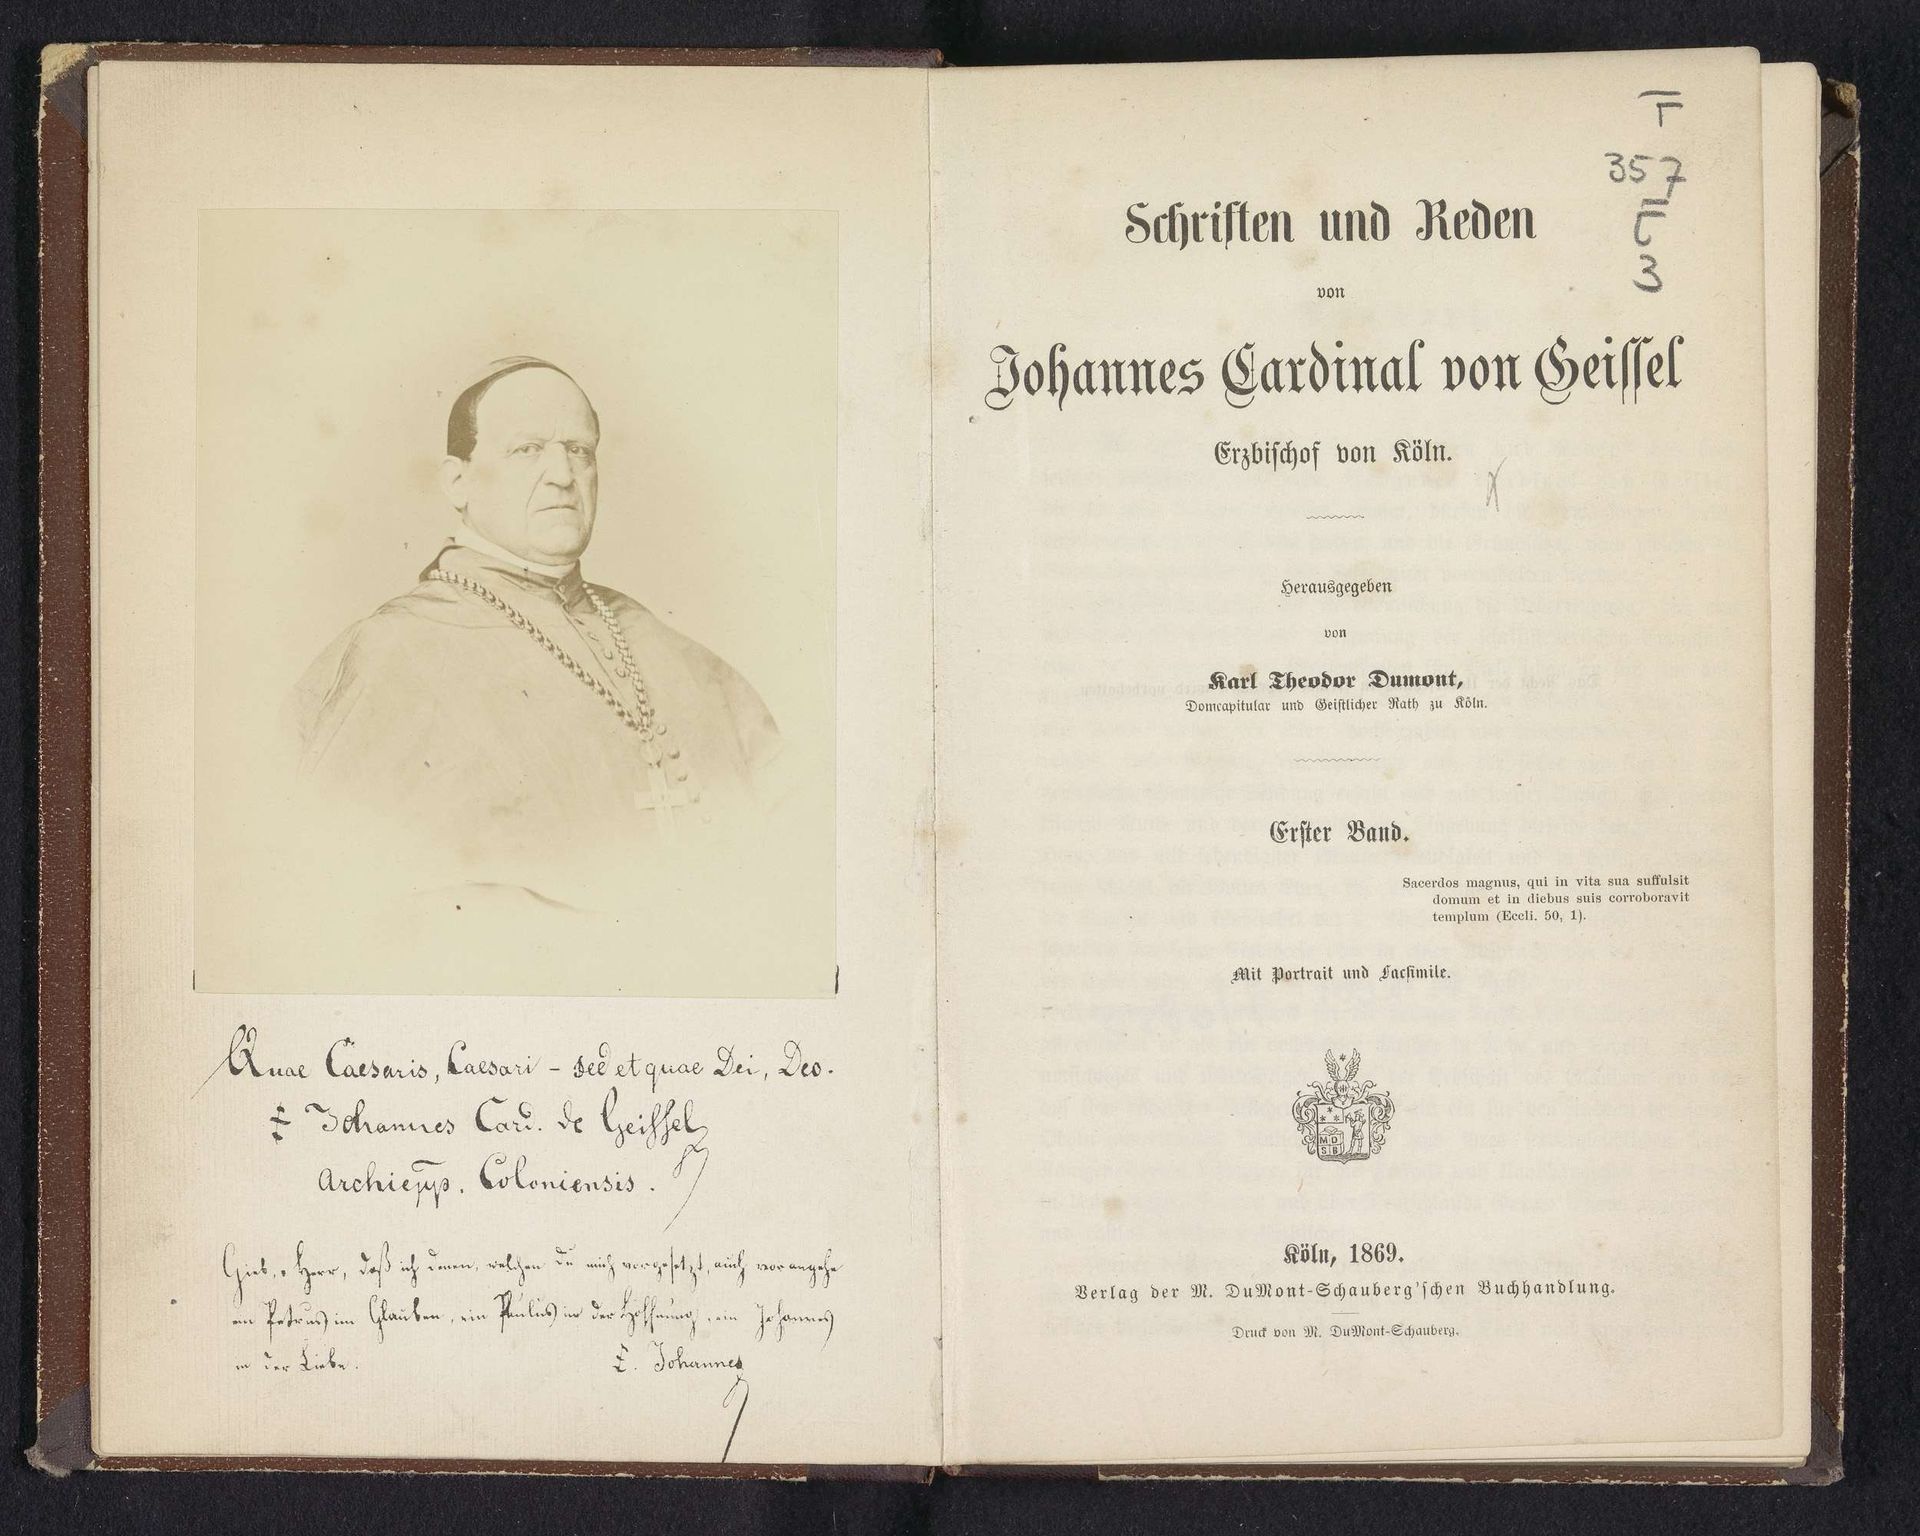 Quae Caesaris, Caesari - sed et quae Dei, Deo.
‡ Johannes Card. de Geissel
Archiepp. Coloniensis.
Gieb, o Herr, daß ich denen, welchen du mich vorgesetzt, auch vorangehe
ein Petrus im Glauben, ein Paulus in der Hoffnung, ein Johannes
in der Liebe.
‡. Johannes
T
357
C
3
Schriften und Reden
von
Johannes Cardinal von Geissel
Erzbischof von Köln.
Herausgegeben
von
Karl Theodor Dumont,
Domcapitular und Geistlicher Rath zu Köln.
Erster Band.
Sacerdos magnus, qui in vita sua suffulsit
domum et in diebus suis corroboravit
templum (Eccli. 50, 1).
Mit Portrait und Facsimile.
MD
SB
Köln, 1869.
Verlag der M. DuMont-Schauberg'schen Buchhandlung.
Druck von M. DuMont-Schauberg.